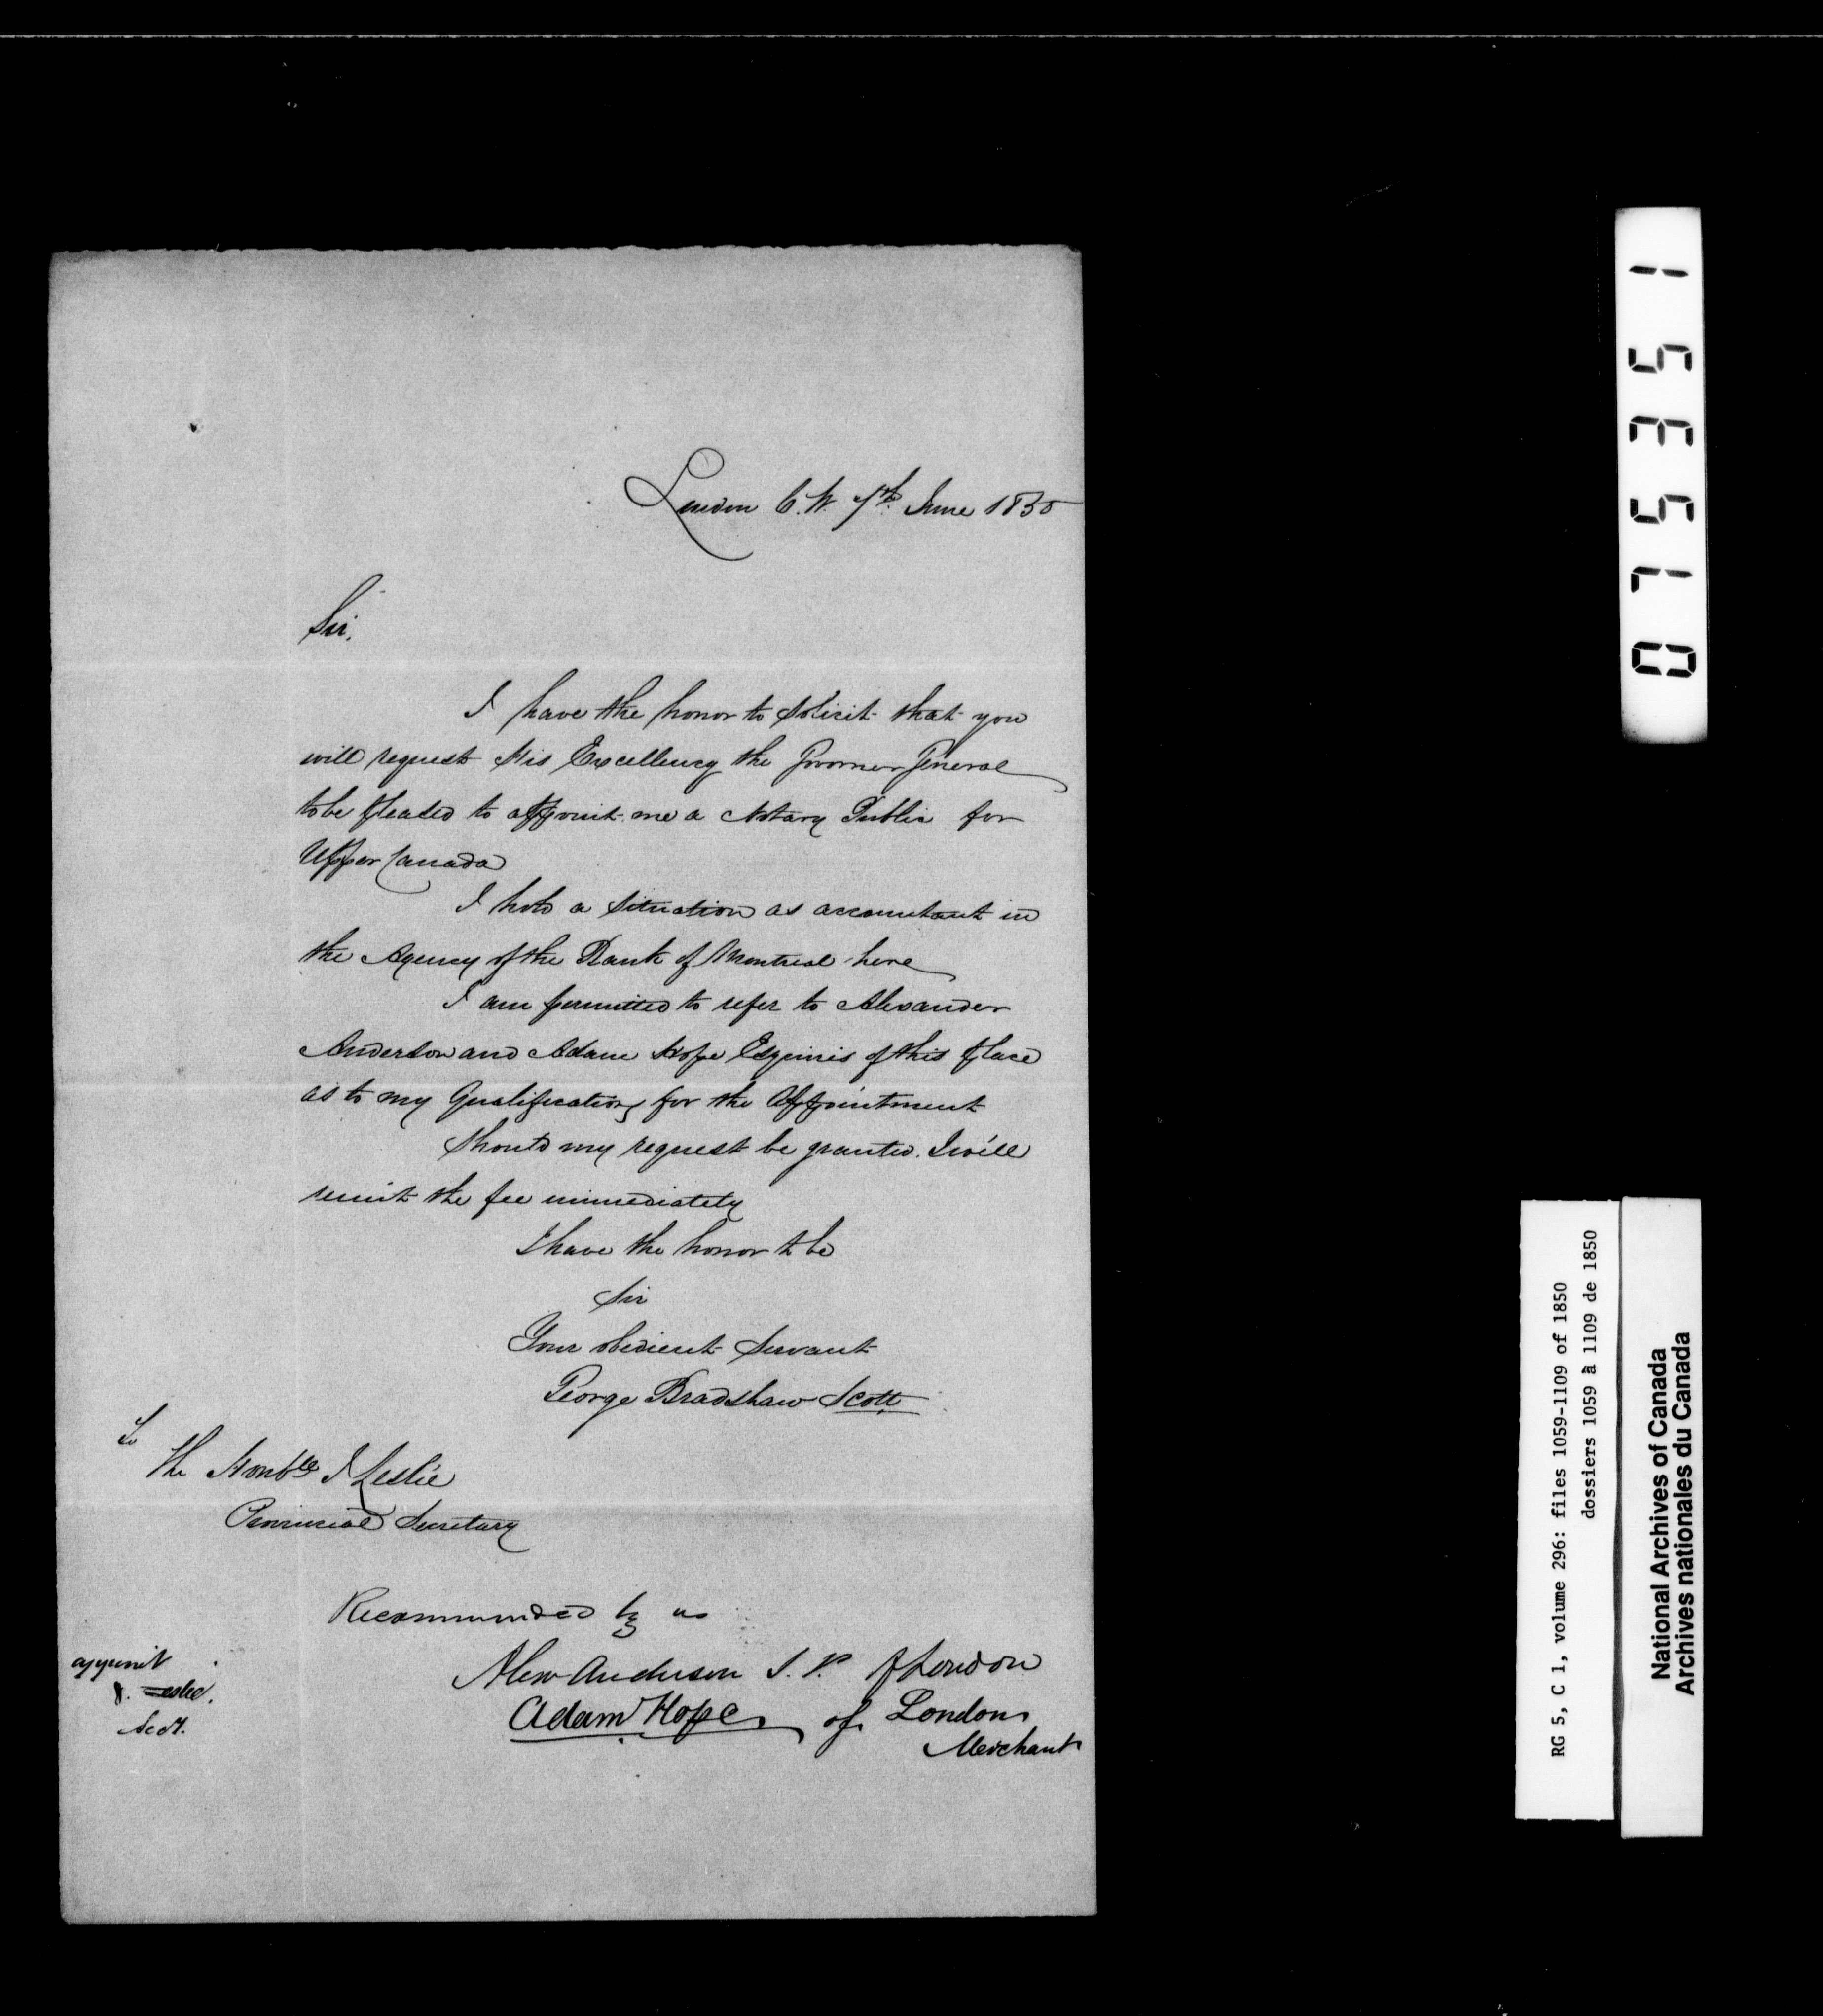 London C.W. 7th June 1850
Sir,
I have the honor to solicit that you
will request His Excellency the Governor General
to be pleased to appoint me a Notary Public for
Upper Canada
I hold a situation as accountant in
the Agency of the Bank of Montreal here
I am permitted to refer to Alexander
Anderson and Adam Hope Esquires of this place
as to my Qualifications for the Appointment
Should my request be granted. I will
remit the fee immediately
I have the honor to be
Sir
Your obedient Servant
George Bradshaw Scott
To
The Honble J Leslie
Provincial Secretary
Recommended by us
Alexr Anderson J.P. of London
Adam Hope of London
Merchant
appoint
J. Leslie.
Secy.
075351
RG 5, C 1, volume 296: files 1059-1109 of 1850
dossiers 1059 à 1109 de 1850
National Archives of Canada
Archives nationales du Canada